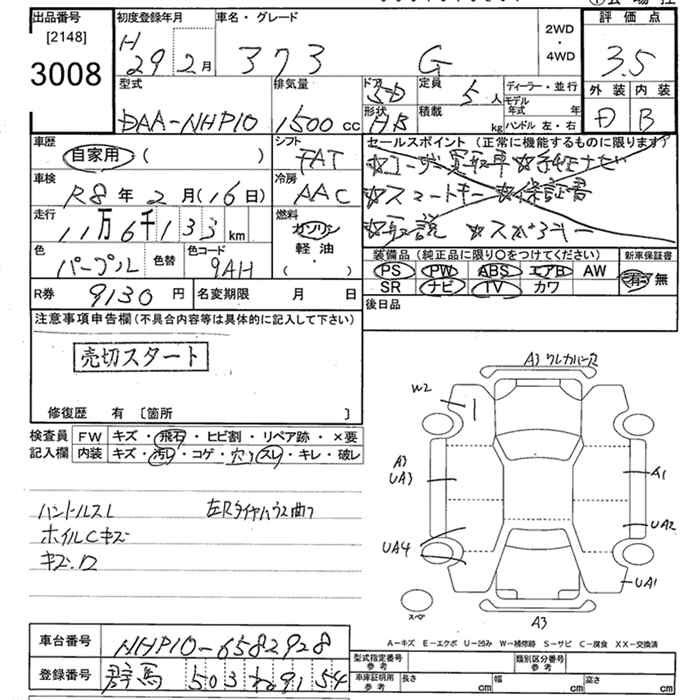 出品番号 初度登録年月 車名・グレード 評価点
[2148] 3008
H 29年2月 373 G 2WD・4WD 3.5
外装 内装
D B
型式 排気量 ドア 定員 ディーラー・並行
DAA-NHP10 1500cc 5D 5人
形状 積載 モデル年式 年
HB kg ハンドル 左・右
車歴 自家用 ( )
シフト FAT
セールスポイント (正常に機能するものに限ります)
☆ナビ
☆スマートキー ☆保証書
☆取説 スペアキー
車検 R8年2月(16日)
冷房 AAC
走行 11万6千133km
燃料 ガソリン 軽油・( )
色 パープル 色替 色コード 9AH
装備品 (純正品に限り○をつけてください) 新車保証書
PS PW ABS エアB AW 有・無
SR ナビ TV カワ
R券 9130円 名変期限 月 日
後日品
注意事項申告欄 (不具合内容等は具体的に記入して下さい)
売切スタート
修復歴 有 〔箇所 〕
検査員 FW キズ・飛石・ヒビ割・リペア跡・×要
記入欄 内装 キズ・汚レ・コゲ・穴・スレ・キレ・破レ
ハンドルスレ
ホイルCキズ
キズ・ワ
A3
W2
A3
UA3
A1
UA2
UA4
UA1
スペア
A3
A-キズ E-エクボ U-凹み W-補修跡 S-サビ C-腐食 XX-交換済
車台番号 NHP10-6582928
登録番号 群馬 503 ね 9154
型式指定番号 参考 類別区分番号 参考
車庫証明用 参考 長さ cm 幅 cm 高さ cm